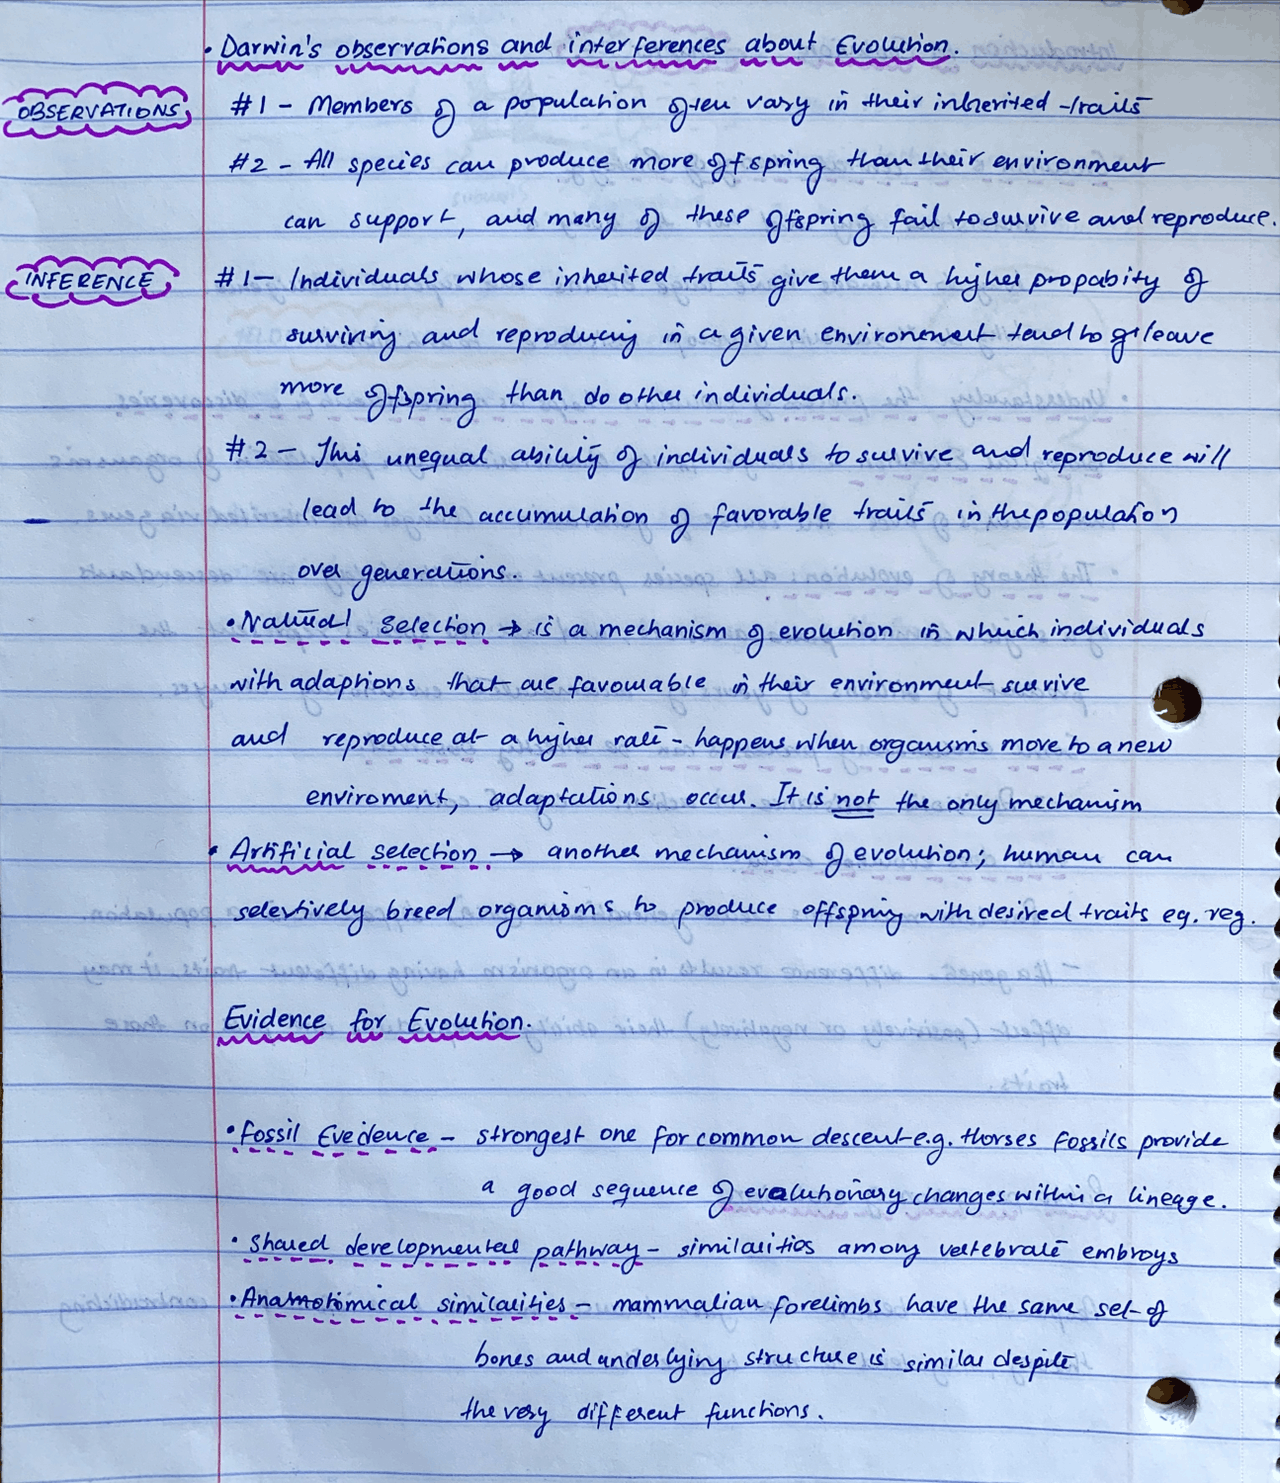 • Darwin's observations and interferences about Evolution.
OBSERVATIONS
#1 - Members of a population often vary in their inherited traits
#2 - All species can produce more offspring than their environment
can support, and many of these offspring fail to survive and reproduce.
INFERENCE
#1 - Individuals whose inherited traits give them a higher propabity of
surviving and reproducing in a given environment tend to leave
more offspring than do other individuals.
#2 - This unequal ability of individuals to survive and reproduce will
lead to the accumulation of favorable traits in the population
over generations.
• Natural selection → is a mechanism of evolution in which individuals
with adaptions that are favourable in their environment survive
and reproduce at a higher rate - happens when organisms move to a new
enviroment, adaptations occur. It is not the only mechanism
• Artificial selection → another mechanism of evolution; human can
selectively breed organisms to produce offspring with desired traits eg. reg.
Evidence for Evolution.
• Fossil Evedence - strongest one for common descent e.g. Horses fossils provide
a good sequence of evolutionary changes within a lineage.
• Shared developmental pathway - similarities among vertebrate embroys
• Anamotomical similarities - mammalian forelimbs have the same set of
bones and underlying structure is similar despite
the very different functions.